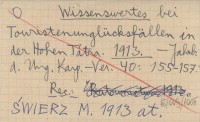 Wissenswertes bei
Touristenunglücksfällen in
der Hohen Tátra. 1913. — Jahrb.
d. Ung. Karp.-Ver. 40: 155-157.
Rec.:
ŚWIERZ M. 1913 at.